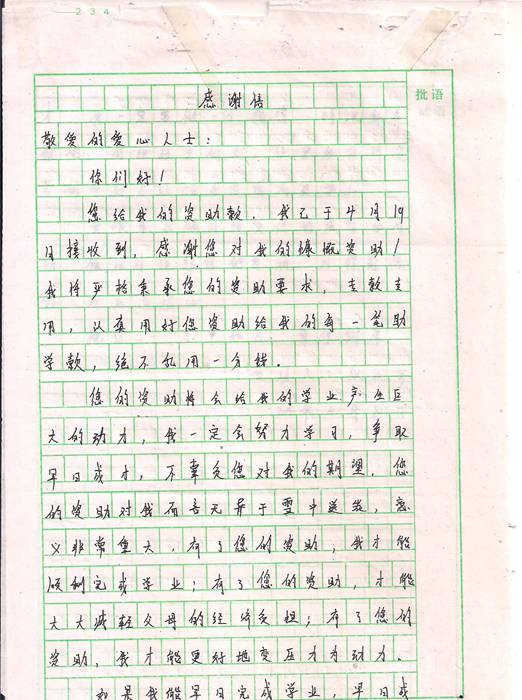 234
批语
感谢信
敬爱的爱心人士：
你们好！
您给我的资助款，我已于4月19
日接收到，感谢您对我的慷慨资助！
我将严格秉承您的资助要求，专款专
用，认真用好您资助给我的每一笔助
学款，绝不乱用一分钱。
您的资助将会给我的学业产生巨
大的动力，我一定会努力学习，争取
早日成才，不辜负您对我的期望。您
的资助对我而言无异于雪中送炭，意
义非常重大，有了您的资助，我才能
顺利完成学业；有了您的资助，才能
大大减轻父母的经济负担；有了您的
资助，我才能更好地变压力为动力。
如果我能早日完成学业，早日成